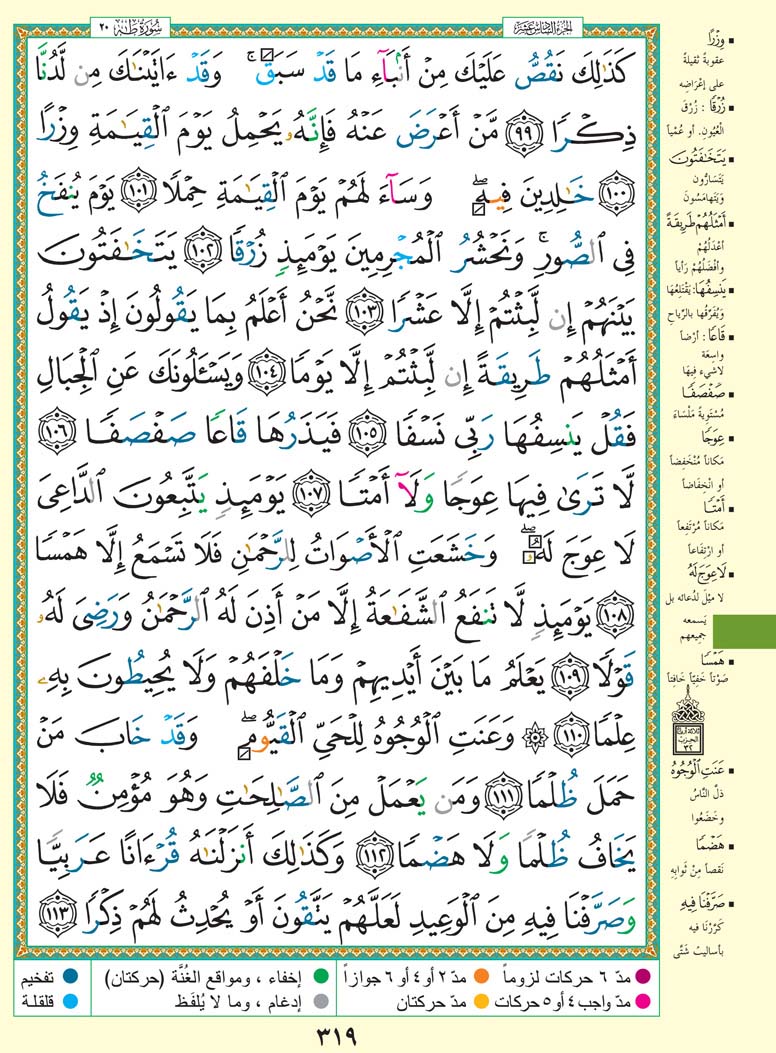 سُورَةُ طه ٢٠
الجزء السادس عشر
كَذَٰلِكَ نَقُصُّ عَلَيْكَ مِنْ أَنۢبَآءِ مَا قَدْ سَبَقَ ۚ وَقَدْ ءَاتَيْنَٰكَ مِن لَّدُنَّا
ذِكْرًا ٩٩ مَّنْ أَعْرَضَ عَنْهُ فَإِنَّهُۥ يَحْمِلُ يَوْمَ ٱلْقِيَٰمَةِ وِزْرًا
١٠٠ خَٰلِدِينَ فِيهِ ۖ وَسَآءَ لَهُمْ يَوْمَ ٱلْقِيَٰمَةِ حِمْلًا ١٠١ يَوْمَ يُنفَخُ
فِى ٱلصُّورِ ۚ وَنَحْشُرُ ٱلْمُجْرِمِينَ يَوْمَئِذٍ زُرْقًا ١٠٢ يَتَخَٰفَتُونَ
بَيْنَهُمْ إِن لَّبِثْتُمْ إِلَّا عَشْرًا ١٠٣ نَّحْنُ أَعْلَمُ بِمَا يَقُولُونَ إِذْ يَقُولُ
أَمْثَلُهُمْ طَرِيقَةً إِن لَّبِثْتُمْ إِلَّا يَوْمًا ١٠٤ وَيَسْـَٔلُونَكَ عَنِ ٱلْجِبَالِ
فَقُلْ يَنسِفُهَا رَبِّى نَسْفًا ١٠٥ فَيَذَرُهَا قَاعًا صَفْصَفًا ١٠٦
لَّا تَرَىٰ فِيهَا عِوَجًا وَلَآ أَمْتًا ١٠٧ يَوْمَئِذٍ يَتَّبِعُونَ ٱلدَّاعِىَ
لَا عِوَجَ لَهُۥ ۖ وَخَشَعَتِ ٱلْأَصْوَاتُ لِلرَّحْمَٰنِ فَلَا تَسْمَعُ إِلَّا هَمْسًا
١٠٨ يَوْمَئِذٍ لَّا تَنفَعُ ٱلشَّفَٰعَةُ إِلَّا مَنْ أَذِنَ لَهُ ٱلرَّحْمَٰنُ وَرَضِىَ لَهُۥ
قَوْلًا ١٠٩ يَعْلَمُ مَا بَيْنَ أَيْدِيهِمْ وَمَا خَلْفَهُمْ وَلَا يُحِيطُونَ بِهِۦ
عِلْمًا ١١٠ ۞ وَعَنَتِ ٱلْوُجُوهُ لِلْحَىِّ ٱلْقَيُّومِ ۖ وَقَدْ خَابَ مَنْ
حَمَلَ ظُلْمًا ١١١ وَمَن يَعْمَلْ مِنَ ٱلصَّٰلِحَٰتِ وَهُوَ مُؤْمِنٌ فَلَا
يَخَافُ ظُلْمًا وَلَا هَضْمًا ١١٢ وَكَذَٰلِكَ أَنزَلْنَٰهُ قُرْءَانًا عَرَبِيًّا
وَصَرَّفْنَا فِيهِ مِنَ ٱلْوَعِيدِ لَعَلَّهُمْ يَتَّقُونَ أَوْ يُحْدِثُ لَهُمْ ذِكْرًا ١١٣
▪ وِزْرًا
عقوبةً ثقيلةً
على إعْرَاضِه
▪ زُرْقًا : زُرْقَ
الْعُيُونِ. أو عُمْياً
▪ يَتَخَٰفَتُونَ
يَتَسَارُّونَ
وَيَتَهامَسُونَ
▪ أَمْثَلُهُمْ طَرِيقَةً
أعْدَلُهُمْ
وأفْضَلُهُمْ رَأياً
▪ يَنسِفُهَا: يَقْتَلِعُهَا
وَيُفَرِّقُها بالرِّياحِ
▪ قَاعًا : أرْضاً
واسِعَة
لاشيء فِيهَا
▪ صَفْصَفًا
مُسْتَوِيةً مَلْسَاءَ
▪ عِوَجًا
مَكاناً مُنْخَفِضاً
أو انْخِفَاضاً
▪ أَمْتًا
مَكاناً مُرْتَفِعاً
أو ارْتِفَاعاً
▪ لَا عِوَجَ لَهُ
لا مَيْلَ لدُعائه بل
يَسمعه
جميعهم
▪ هَمْسًا
صَوْتاً خَفِيّاً خَافِتاً
ثلاثة أرباع
الحزب
٣٢
▪ عَنَتِ ٱلْوُجُوهُ
ذلّ النَّاسُ
وخَضَعُوا
▪ هَضْمًا
نَقصاً مِنْ ثَوابِهِ
▪ صَرَّفْنَا فِيهِ
كَرَّرْنَا فيه
بأسالیبَ شَتَّى
مدّ ٦ حركات لزوماً مدّ ٢ أو ٤ أو ٦ جوازاً إخفاء ، ومواقع الغُنَّة (حركتان) تفخيم
مدّ واجب ٤ أو ٥ حركات مدّ حركتان إدغام ، وما لا يُلفَظ قلقلة
٣١٩